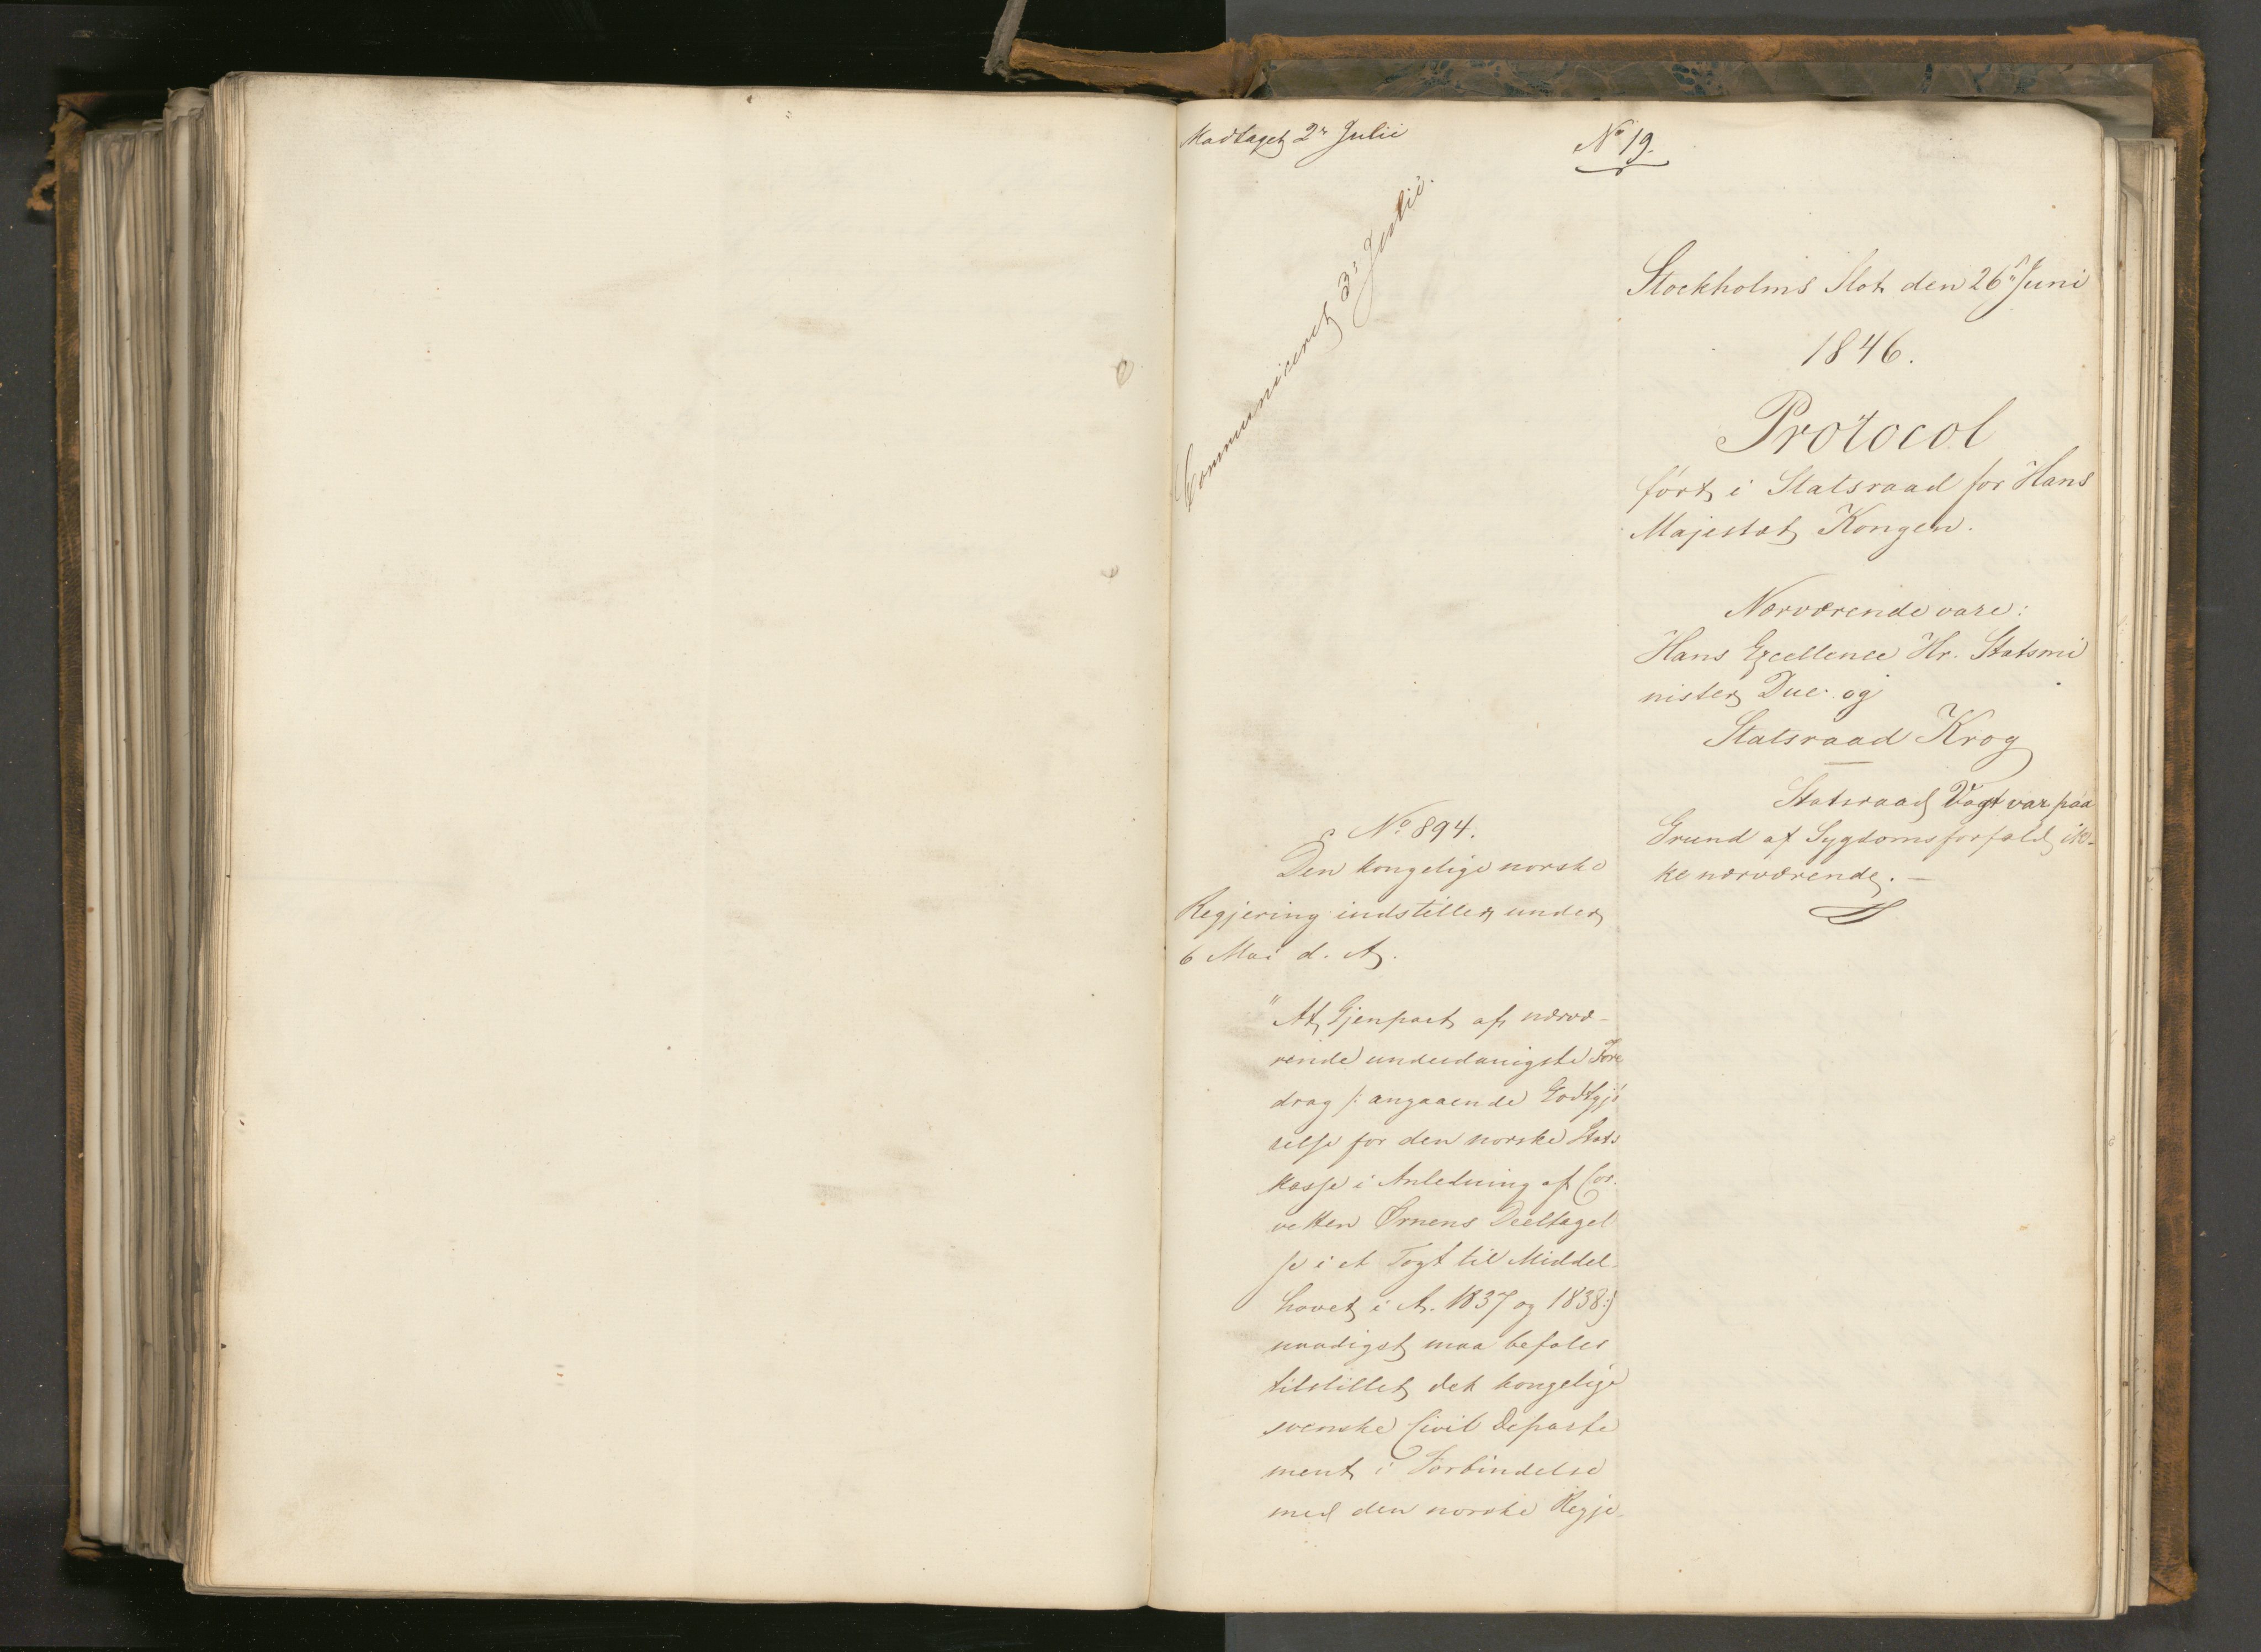 Modtaget 2n Julii
No 19.
Communiceret 3n Julii.
Stockholms Slot den 26n Juni
1846.
Protocol
ført i Statsraad for Hans
Majestæt Kongen.
Nærværende vare:
Hans Excellence Hr. Statsmi
nister Due og
Statsraad Krog
Statsraad Vogt var paa
Grund af Sygdomsforfald ik-
ke nærværende. —
No 894.
Den kongelige norske
Regjering indstiller under
6 Mai d. A.
"At Gjenpart af nærvæ-
rende underdanigste Fore
drag /: angaaende Godtgjø
relse for den norske Stats
kasse i Anledning af Cor-
vetten Ørnens Deeltagel
se i et Togt til Middel-
havet i A. 1837 og 1838:/
naadigst maa befales
tilstillet det kongelige
svenske Civil Departe
ment i Forbindelse
med den norske Regje-